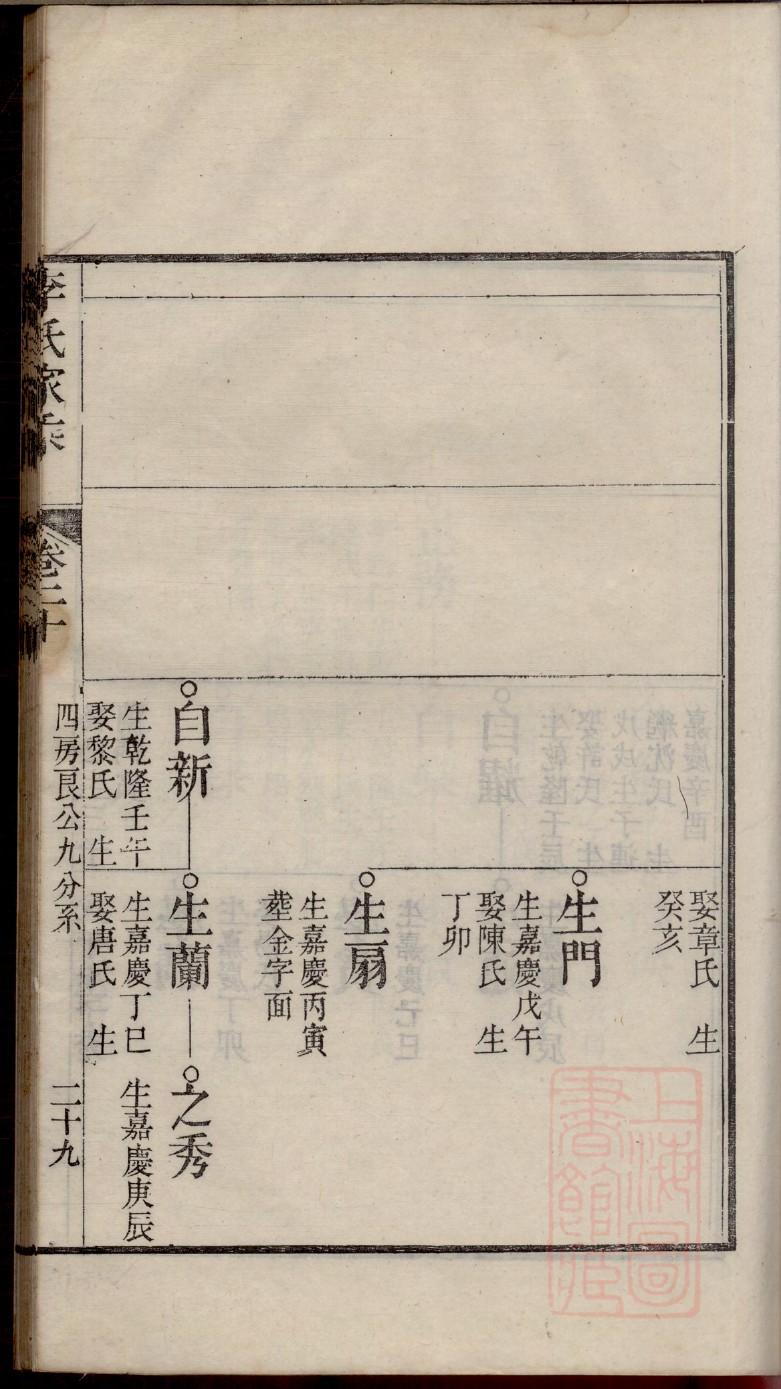 娶章氏　生
癸亥
生門
生嘉慶戊午
娶陳氏　生
丁卯
生扇
生嘉慶丙寅
塟金字面
自新
生乾隆壬午
娶黎氏　生
生蘭
生嘉慶丁巳
娶唐氏　生
之秀
生嘉慶庚辰
李氏家乘
卷二十
四房良公九分系
二十九
上海圖書館藏